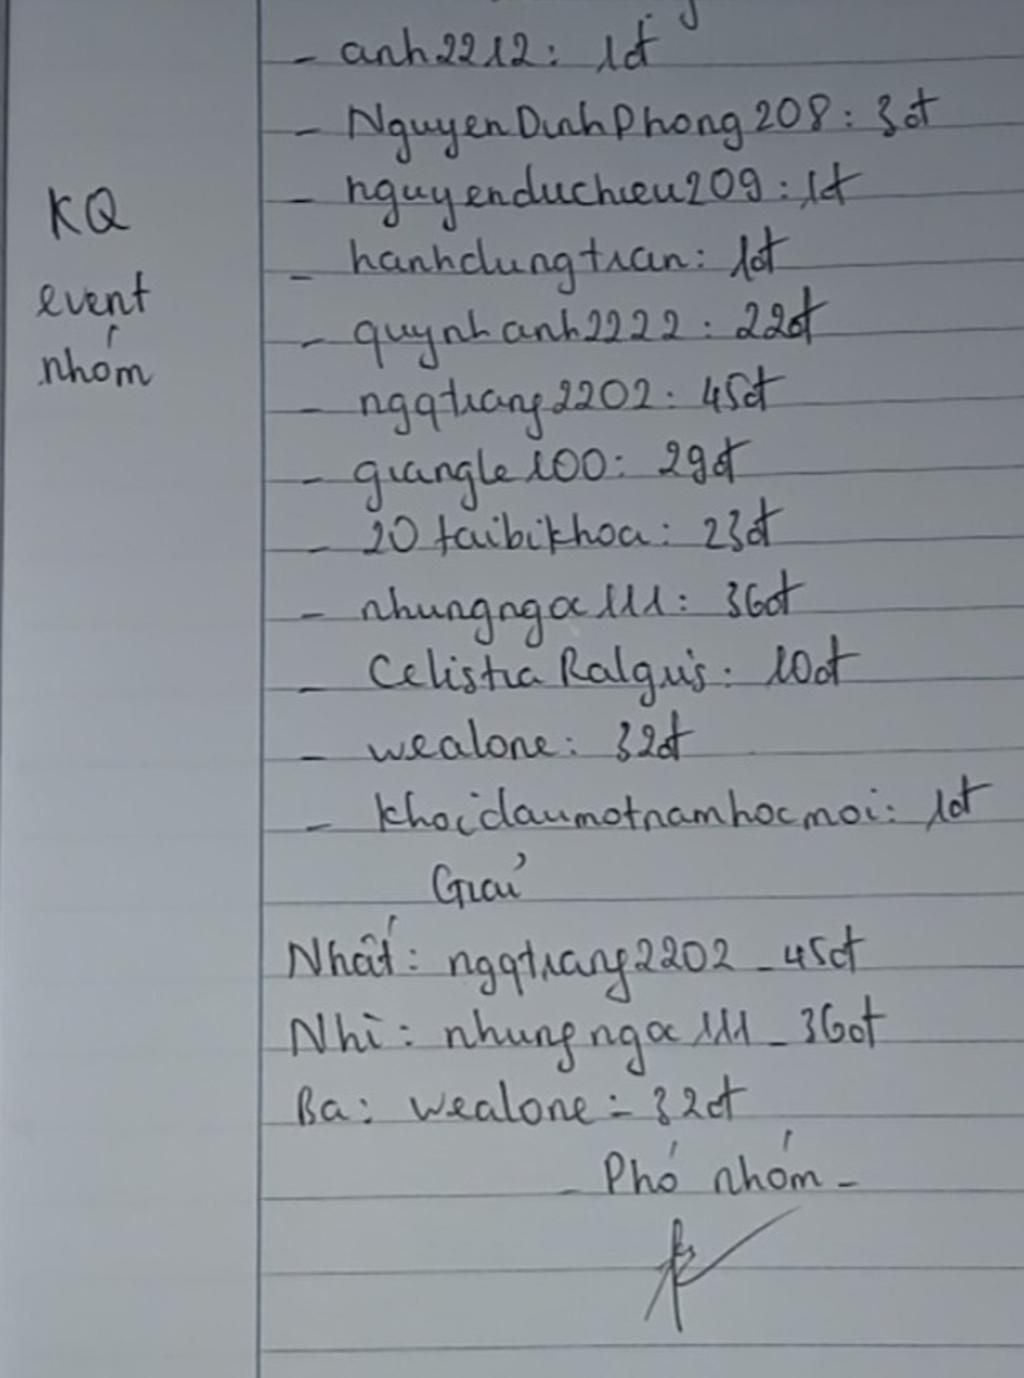 - anh2212: 1đ
- NguyenDinhPhong208: 3đ
- nguyenduchieu209: 1đ
- hanhdungtran: 1đ
- quynhanh2222: 22đ
- ngqtrang2202: 45đ
- giangle100: 29đ
- 20taibikhoa: 23đ
- nhungngoc111: 36đ
- Celistia Ralguis: 10đ
- wealone: 32đ
- khoidaumotnamhocmoi: 1đ
KQ
event
nhóm
Giải
Nhất: ngqtrang2202 - 45đ
Nhì: nhungngoc111 - 36đ
Ba: wealone - 32đ
- Phó nhóm -